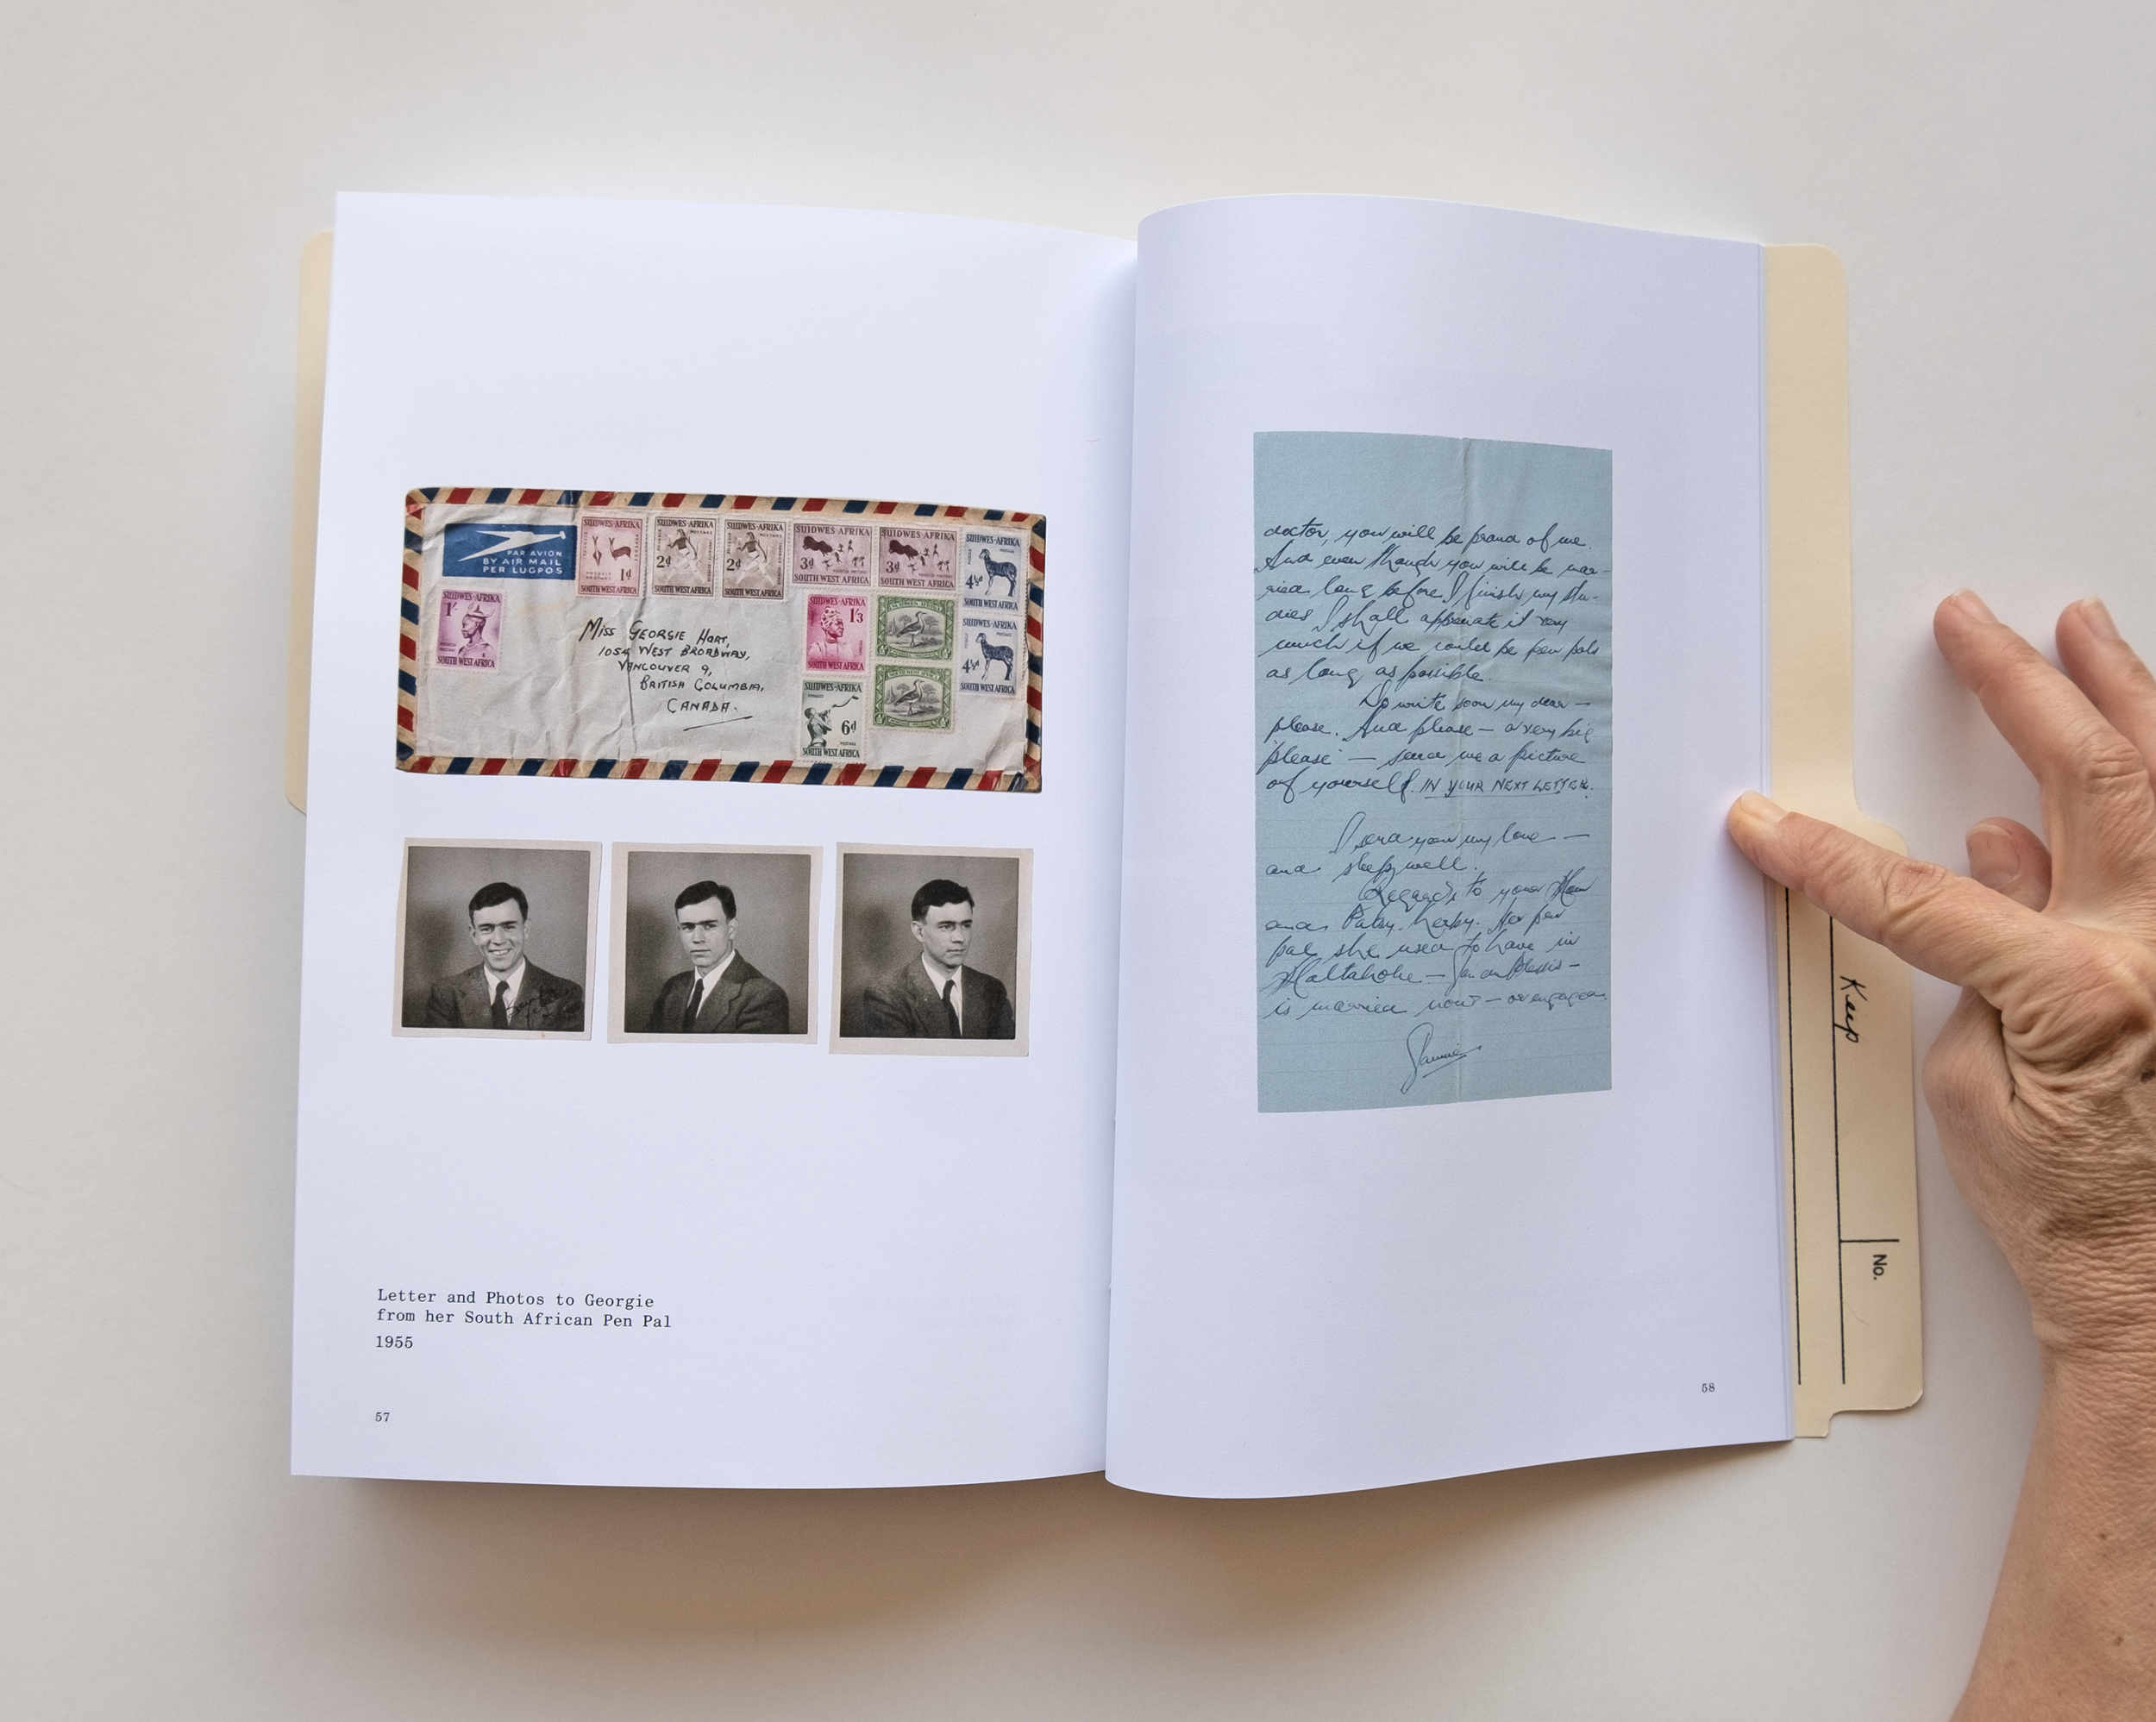 PAR AVION
BY AIR MAIL
PER LUGPOS
SUIDWES-AFRIKA
1d
SOUTH WEST AFRICA
SUIDWES-AFRIKA
POSTAGE
2d
SOUTH WEST AFRICA
SUIDWES-AFRIKA
POSTAGE
2d
SOUTH WEST AFRICA
SUIDWES AFRIKA
3d
SOUTH WEST AFRICA
SUIDWES AFRIKA
3d
SOUTH WEST AFRICA
SUIDWES-AFRIKA
4½d
SOUTH WEST AFRICA
SUIDWES-AFRIKA
1/-
SOUTH WEST AFRICA
SUIDWES-AFRIKA
1/3
SOUTH WEST AFRICA
SUIDWES-AFRIKA
4½d
SOUTH WEST AFRICA
SUIDWES-AFRIKA
6d
POSTAGE
SOUTH WEST AFRICA
MISS GEORGIE HART,
1054 WEST BROADWAY,
VANCOUVER 9,
BRITISH COLUMBIA,
CANADA.
Letter and Photos to Georgie
from her South African Pen Pal
1955
57
doctor, you will be proud of me.
And even though you will be mar-
ried long before I finish my stu-
dies I shall appreciate it very
much if we could be pen pals
as long as possible.
Do write soon my dear —
please. And please — a very big
'please' — send me a picture
of yourself. IN YOUR NEXT LETTER.
I send you my love —
and sleep well.
Regards to your Mom
and Patsy. Her pen
pal she used to have in
Maltahohe —
is married now — or engaged.
58
Keep
No.